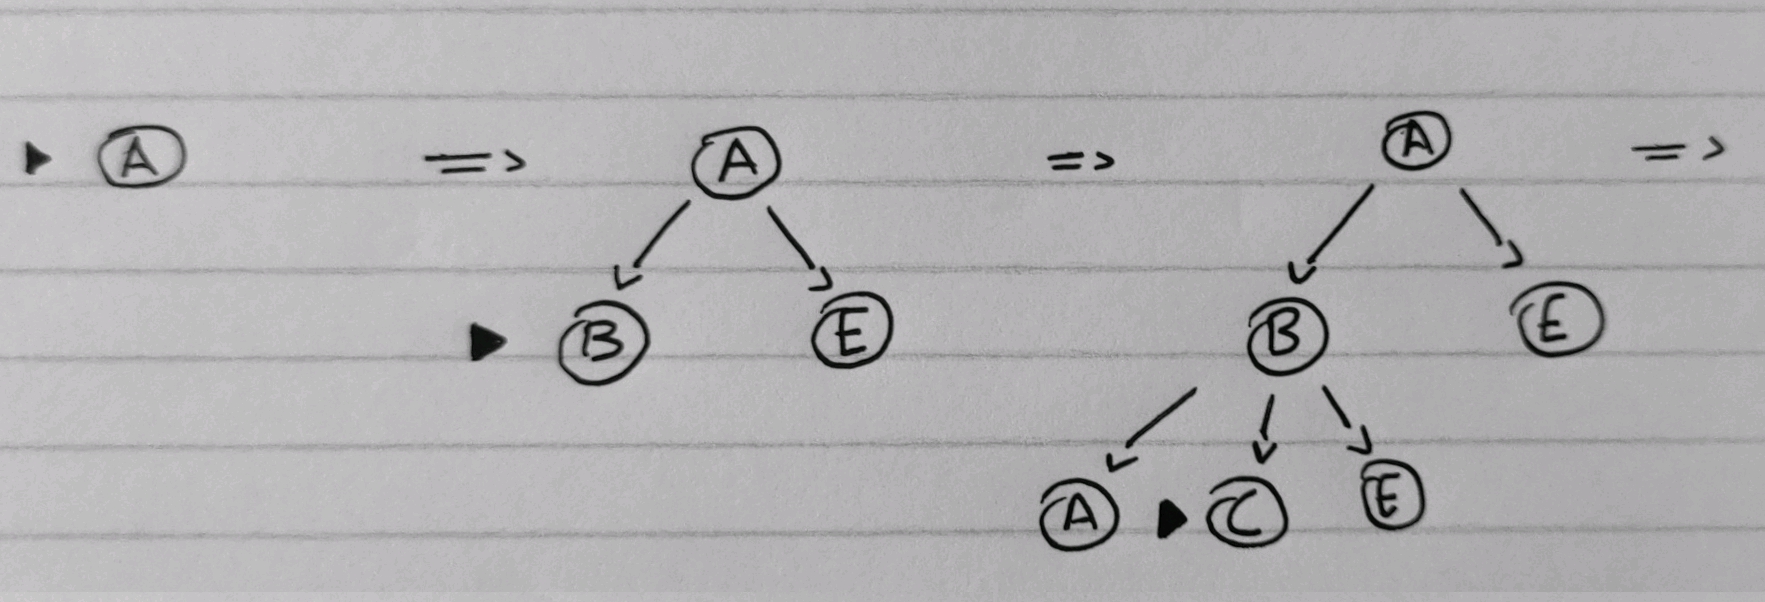 ▶ A => A => A =>
▶ B E B E
A ▶ C E